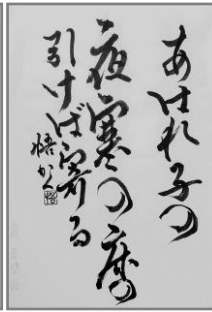 あはれ子の
夜寒の床の
引けば寄る
悟かく